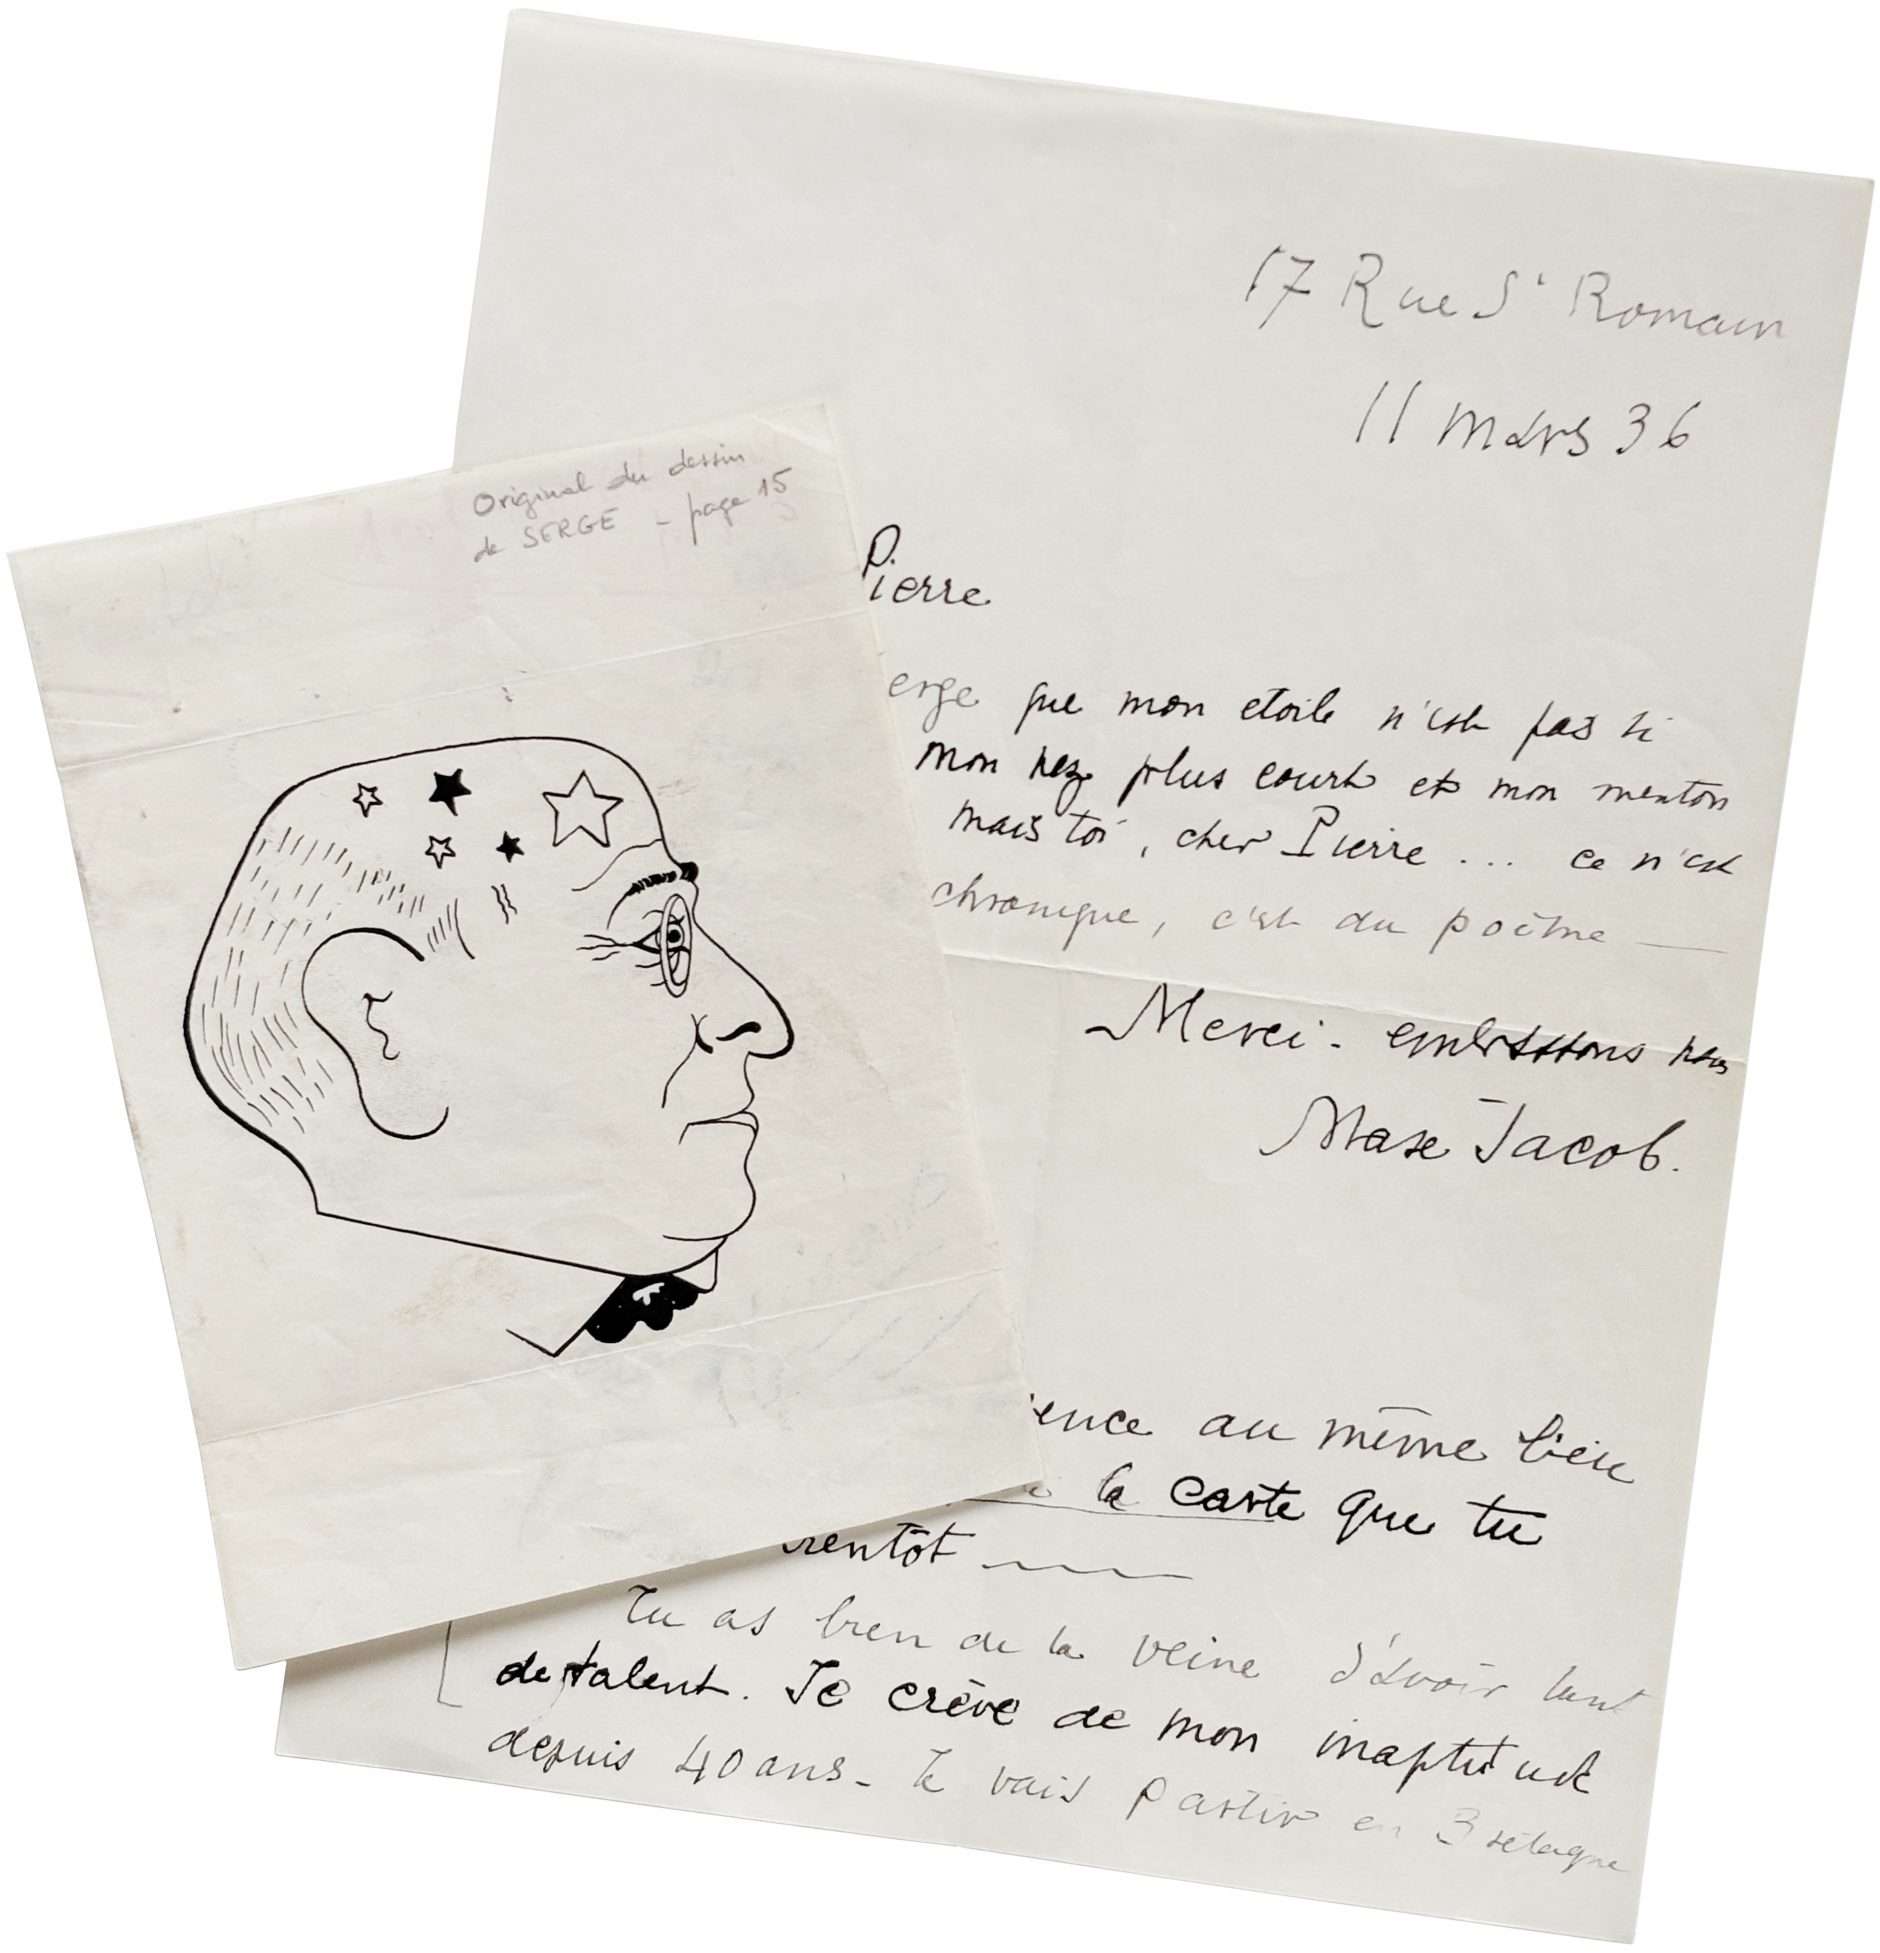 17 Rue St Romain
11 mars 36
Original du dessin
de SERGE - page 15
Pierre
erge que mon etoile n'est pas si
mon nez plus court et mon menton
mais toi, cher Pierre ... ce n'est
chronique, c'est du poème —
Merci - embrassons nous
Max Jacob.
ence au même lieu
la carte que tu
entôt
Tu as bien de la veine d'avoir tant
de talent. Je crève de mon inaptitude
depuis 40 ans - Je vais partir en Bretagne